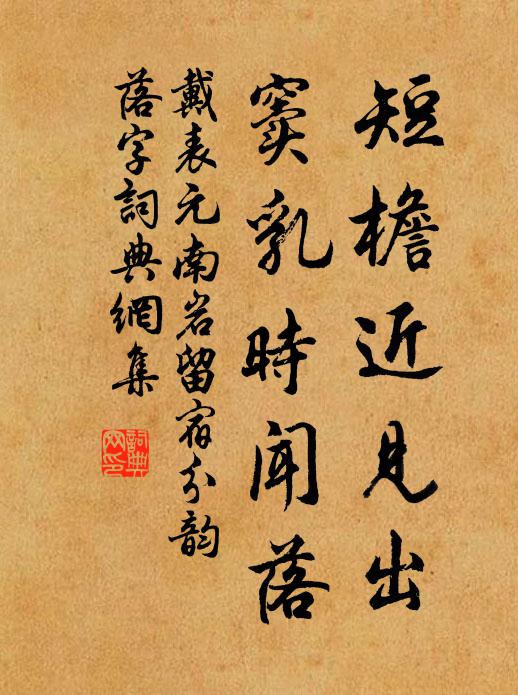 短檐近見出
竇乳時聞落
戴表元南岩留宿分韵
落字詞典網集
詞典網印